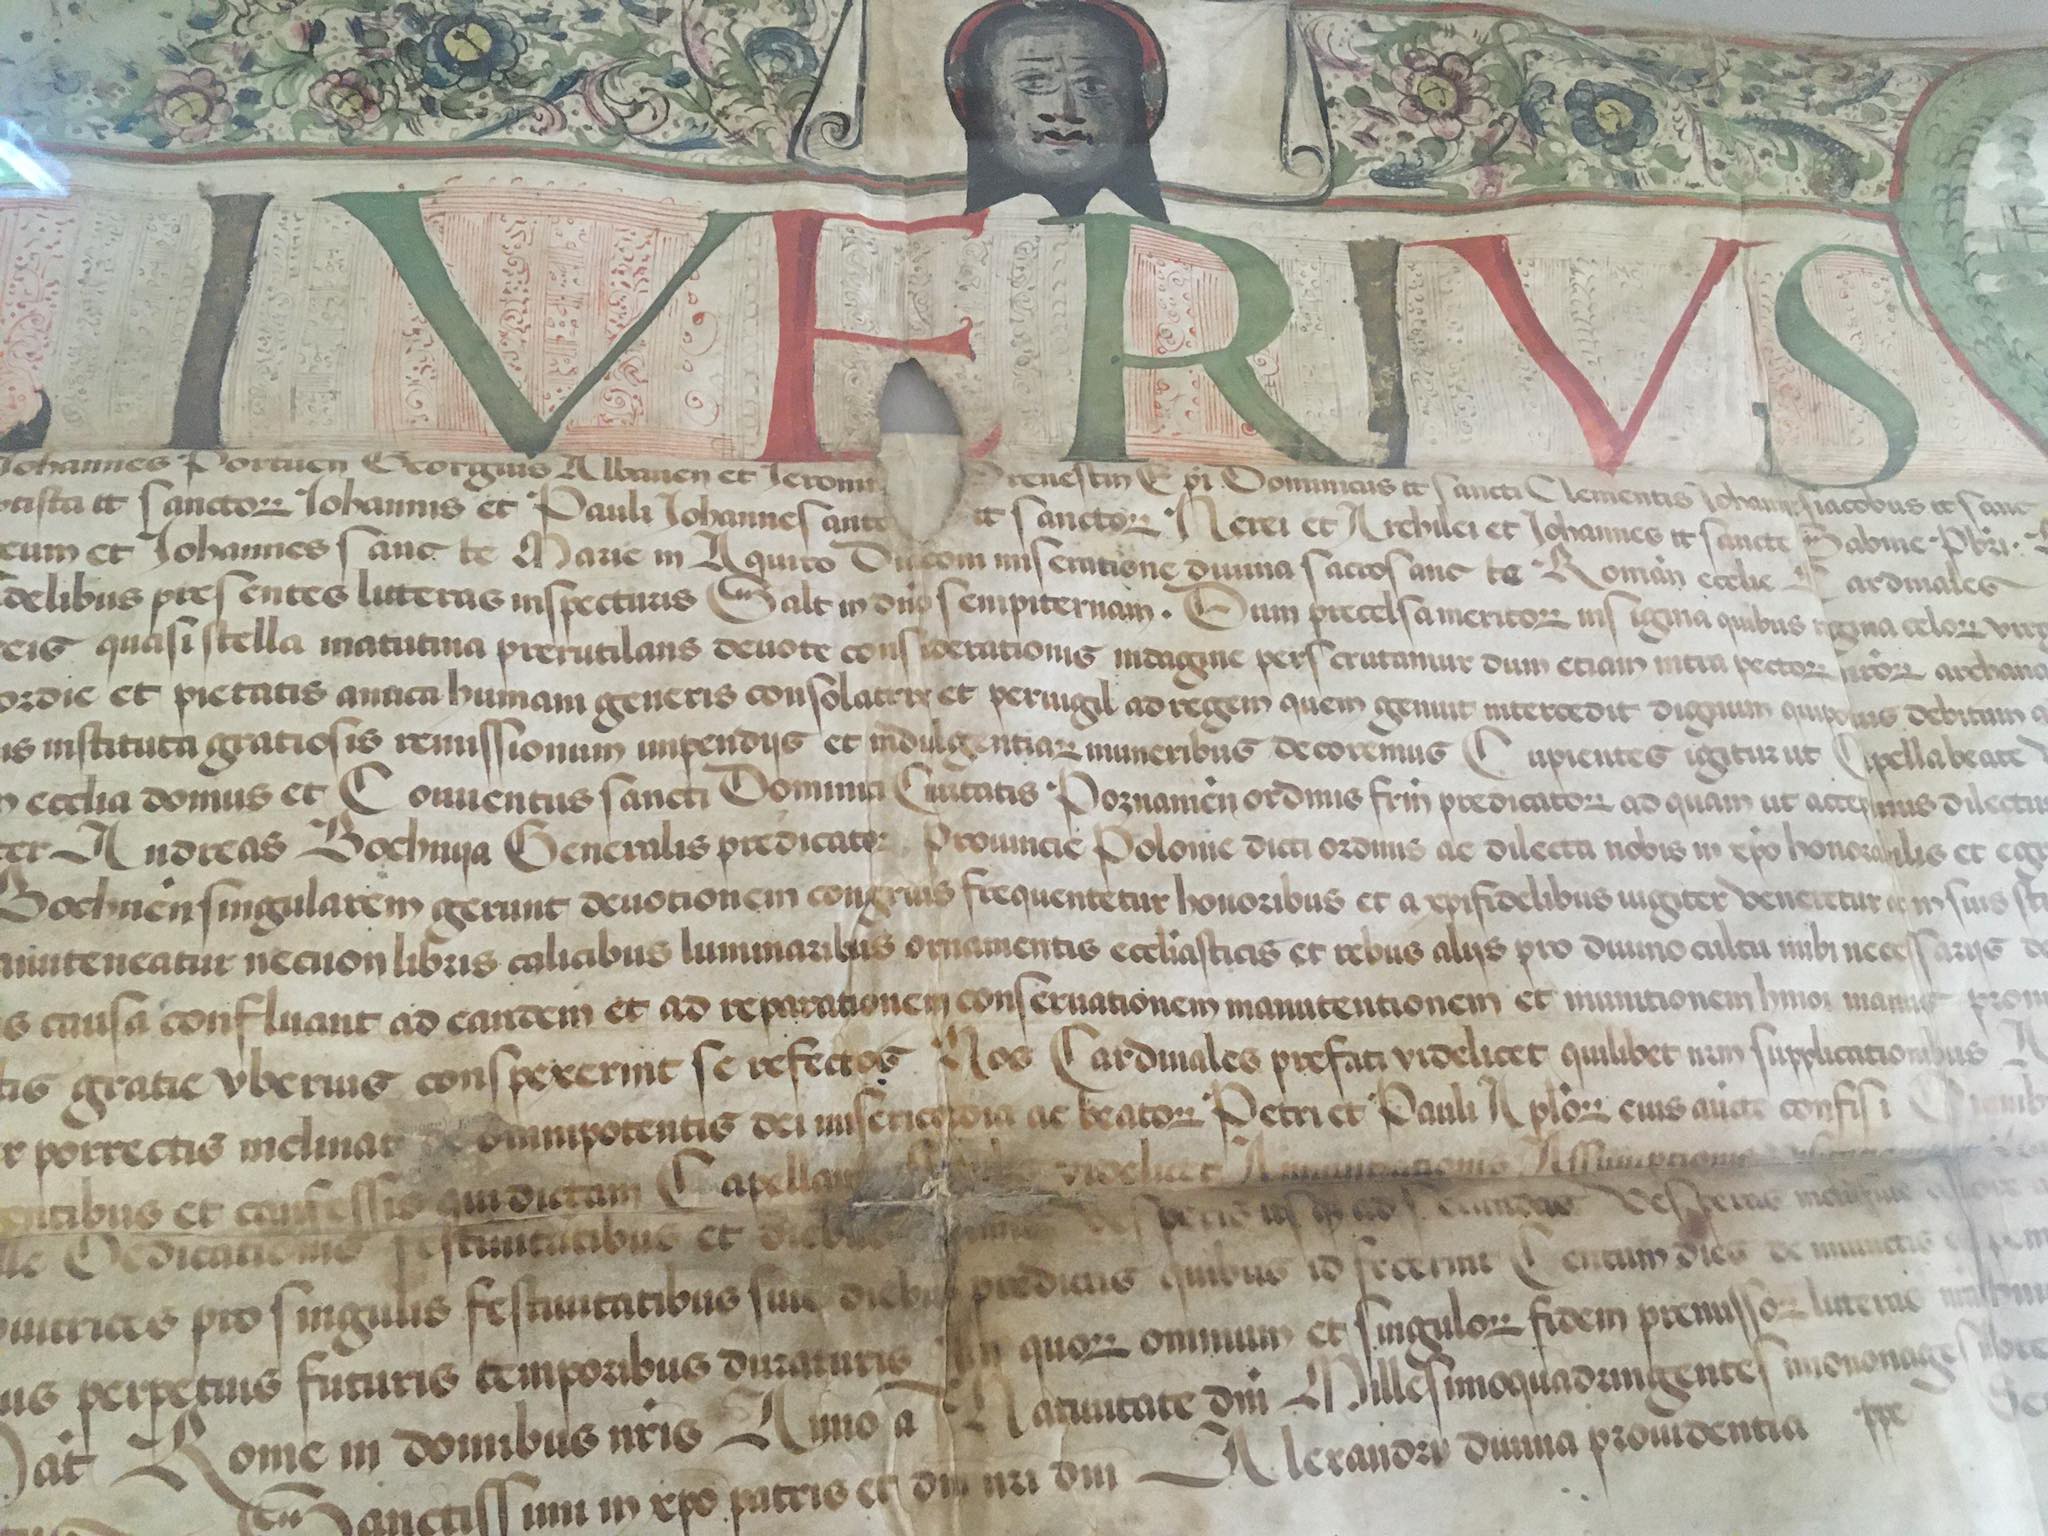 IVERIVS
Johannes Portuen Georgius Albanen et Jeroni Prenestin Epi Dominicus tt sancti Clementis Johannes jacobus tt sanc
tista tt sanctor Johannis et Pauli Johannes anto tt sanctor Nerei et Archilei et Johannes tt sancte Sabine Pbri
eum et Johannes sancte Marie in Aquiro Diacom miseratione diuina sacrosancte Roman ecclie Cardinales
delibus presentes litteras inspecturis Salt in dno sempiternam. Dum precelsa meritor insignia quibus regina celor virg
eis quasi stella matutina prerutilans deuote considerationis indagine perscrutamur dum etiam intra pector nror archana
ordie et pietatis amica humani generis consolatrix et peruigil ad regem quem genuit intercedit dignum quipotius debitum a
us instituta gratiosis remissionum impendijs et indulgentiar muneribus decoremus Cupientes igitur ut Capella beate
n ecclia domus et Conuentus sancti Dominici Ciuitatis Poznanien ordinis frm predicator ad quam ut accepimus dilectus
ter Andreas Bochnya Generalis predicator Prouincie Polonie dicti ordinis ac dilecta nobis in xpo honorabilis et egr
Bochnen singularem gerunt deuotionem congruis frequentetur honoribus et a xpifidelibus iugiter veneretur ac in suis
manuteneatur necnon libris calicibus luminaribus ornamentis ecclesiasticis et rebus alijs pro diuino cultu inibi necessarijs
s causa confluant ad eandem et ad reparationem conseruationem manutentionem et munitionem hmoi manus
tis gratie vberius conspexerint se refectos Nos Cardinales prefati videlicet quilibet nrm supplicationibus
r porrectis inclinati de omnipotentis dei misericordia ac beator Petri et Pauli Aplor eius aucte confisi
entibus et confessis qui dictam Capellam videlicet Annuntiationis Assumptionis
lle Dedicationis festiuitatibus et diebus vesperis usque ad secundas vesperas
uitrices pro singulis festiuitatibus siue diebus predictis quibus id fecerint Centum dies de iniunctis eis
us perpetuis futuris temporibus duraturis In quor omnium et singulor fidem premissor litteras
Dat Rome in domibus nris Anno a Natiuitate dni Millesimoquadringentesimononagesimo
Sanctissimi in xpo patris et dni nri dni Alexandri diuina prouidentia ppe